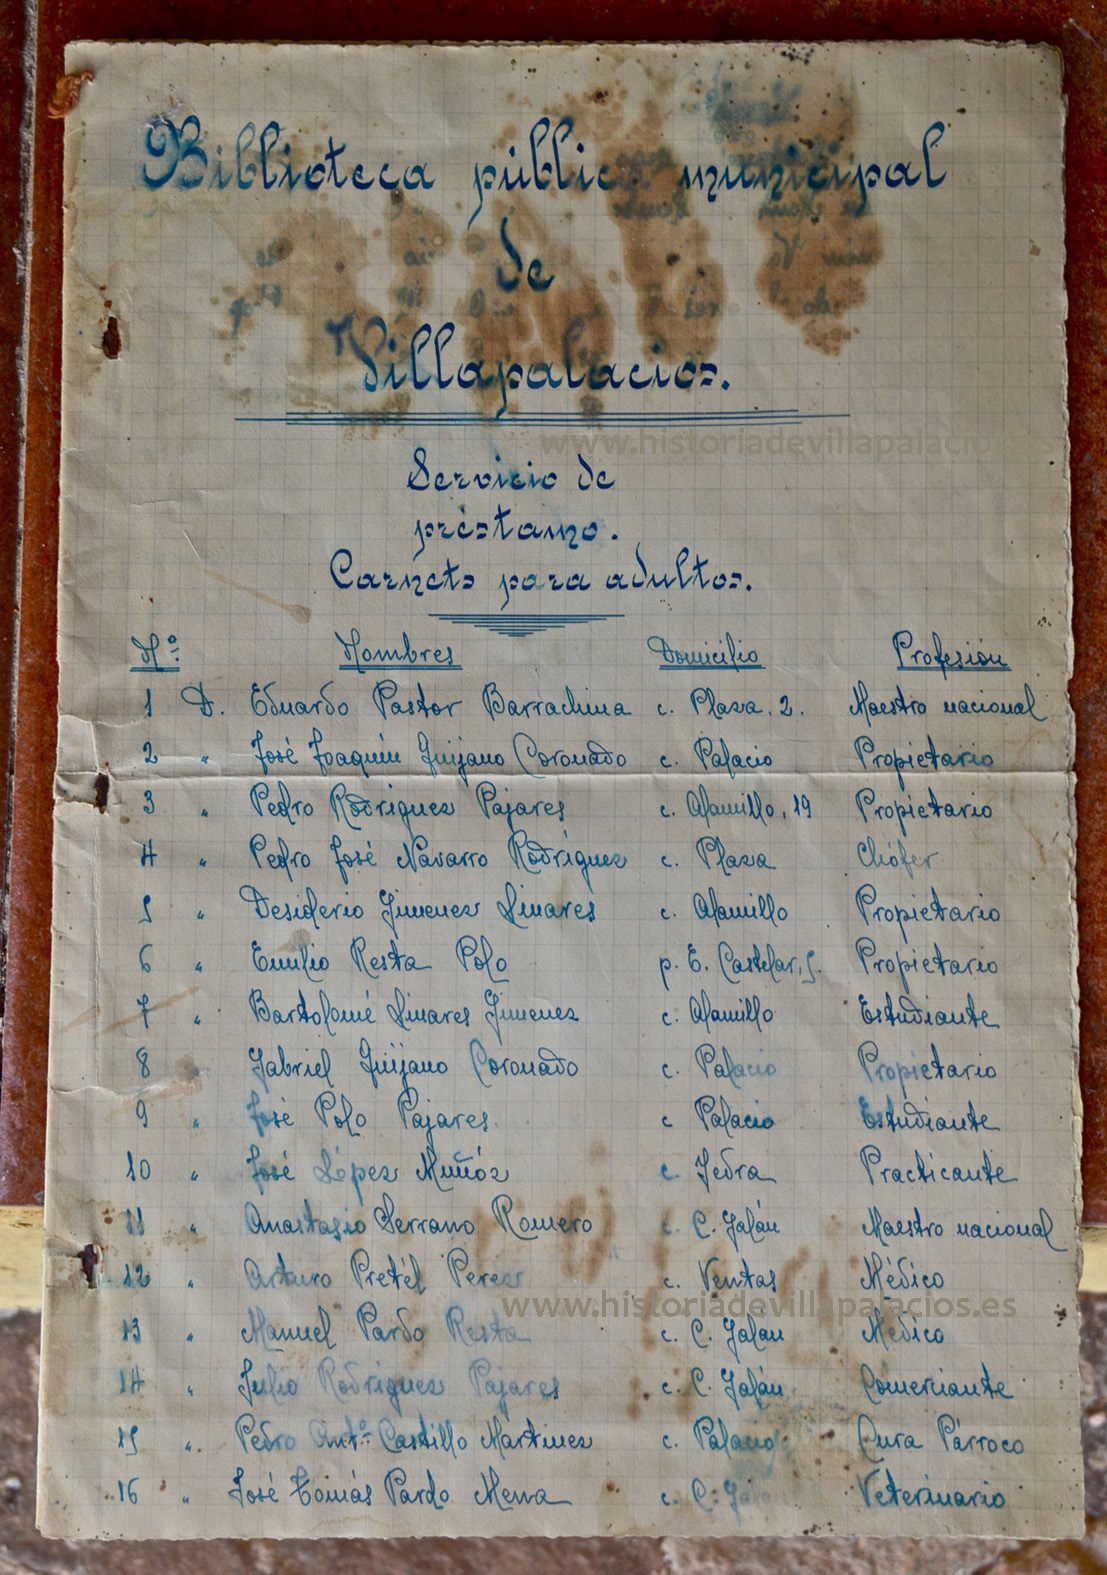 Biblioteca pública municipal
de
Villapalacios.
www.historiadevillapalacio
Servicio de
préstamo.
Carnets para adultos.
Nº Nombres Domicilio Profesión
1 D. Eduardo Pastor Barrachina c. Plaza, 2. Maestro nacional
2 " José Joaquín Guijano Coronado c. Palacio Propietario
3 " Pedro Rodríguez Pajares c. Alamillo, 19 Propietario
4 " Pedro José Navarro Rodríguez c. Plaza Chófer
5 " Desiderio Jimenez Linares c. Alamillo Propietario
6 " Emilio Resta Polo p. E. Castelar, 5. Propietario
7 " Bartolomé Linares Jimenez c. Alamillo Estudiante
8 " Gabriel Guijano Coronado c. Palacio Propietario
9 " José Polo Pajares c Palacio Estudiante
10 " José López Muñóz c. Practicante
11 " Anastasio Serrano Romero c. C. Galán Maestro nacional
12 " Arturo Pretél Perez c. Ventas Médico
www.historiadevillapalacios.es
13 " Manuel Pardo Resta c. C. Galán Medico
14 " Julio Rodríguez Pajares c. C. Galán Comerciante
15 " Pedro Antº Castillo Martinez c. Palacio Cura Párroco
16 " José Tomás Pardo Mena c. C. Galán Veterinario